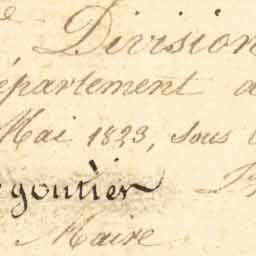 Division
épartement d
Mai 1823, sous
goutier
Maire